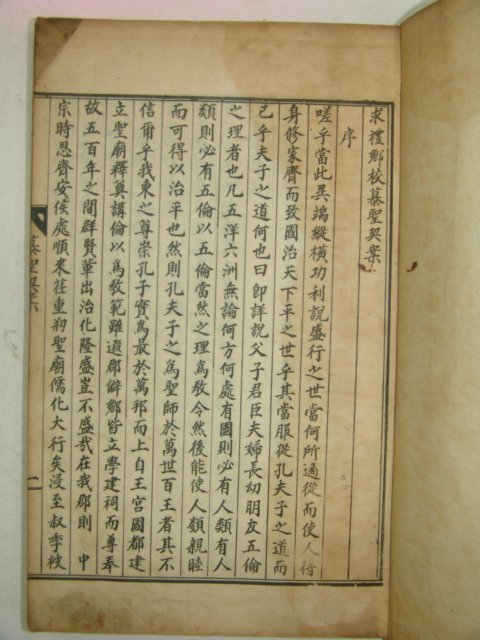 求禮鄉校慕聖契案
序
嗟乎當此異端縱橫功利說盛行之世當何所適從而使人得
身修家齊而致國治天下平之世乎其當服從孔夫子之道而
已乎夫子之道何也曰卽詳說父子君臣夫婦長幼朋友五倫
之理者也凡五洋六洲無論何方何處有國則必有人類有人
類則必有五倫以五倫當然之理爲敎令然後能使人類親睦
而可得以治平也然則孔夫子之爲聖師於萬世百王者其不
信爾乎我東之尊崇孔子實爲最於萬邦而上自王宮國都建
立聖廟釋奠講倫以爲敎範雖遐郡僻鄉皆立學建祠而尊奉
故五百年之間群賢輩出治化隆盛豈不盛哉在我郡則 中
宗時恩齊安侯處順來莅重刱聖廟儒化大行矣漫至叔季被
慕聖契案
一